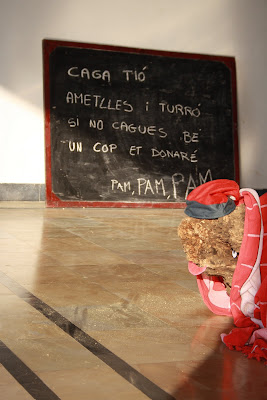 CAGA TIÓ
AMETLLES i TURRÓ
SI NO CAGUES BÉ
UN COP ET DONARÉ
PAM, PAM, PAM